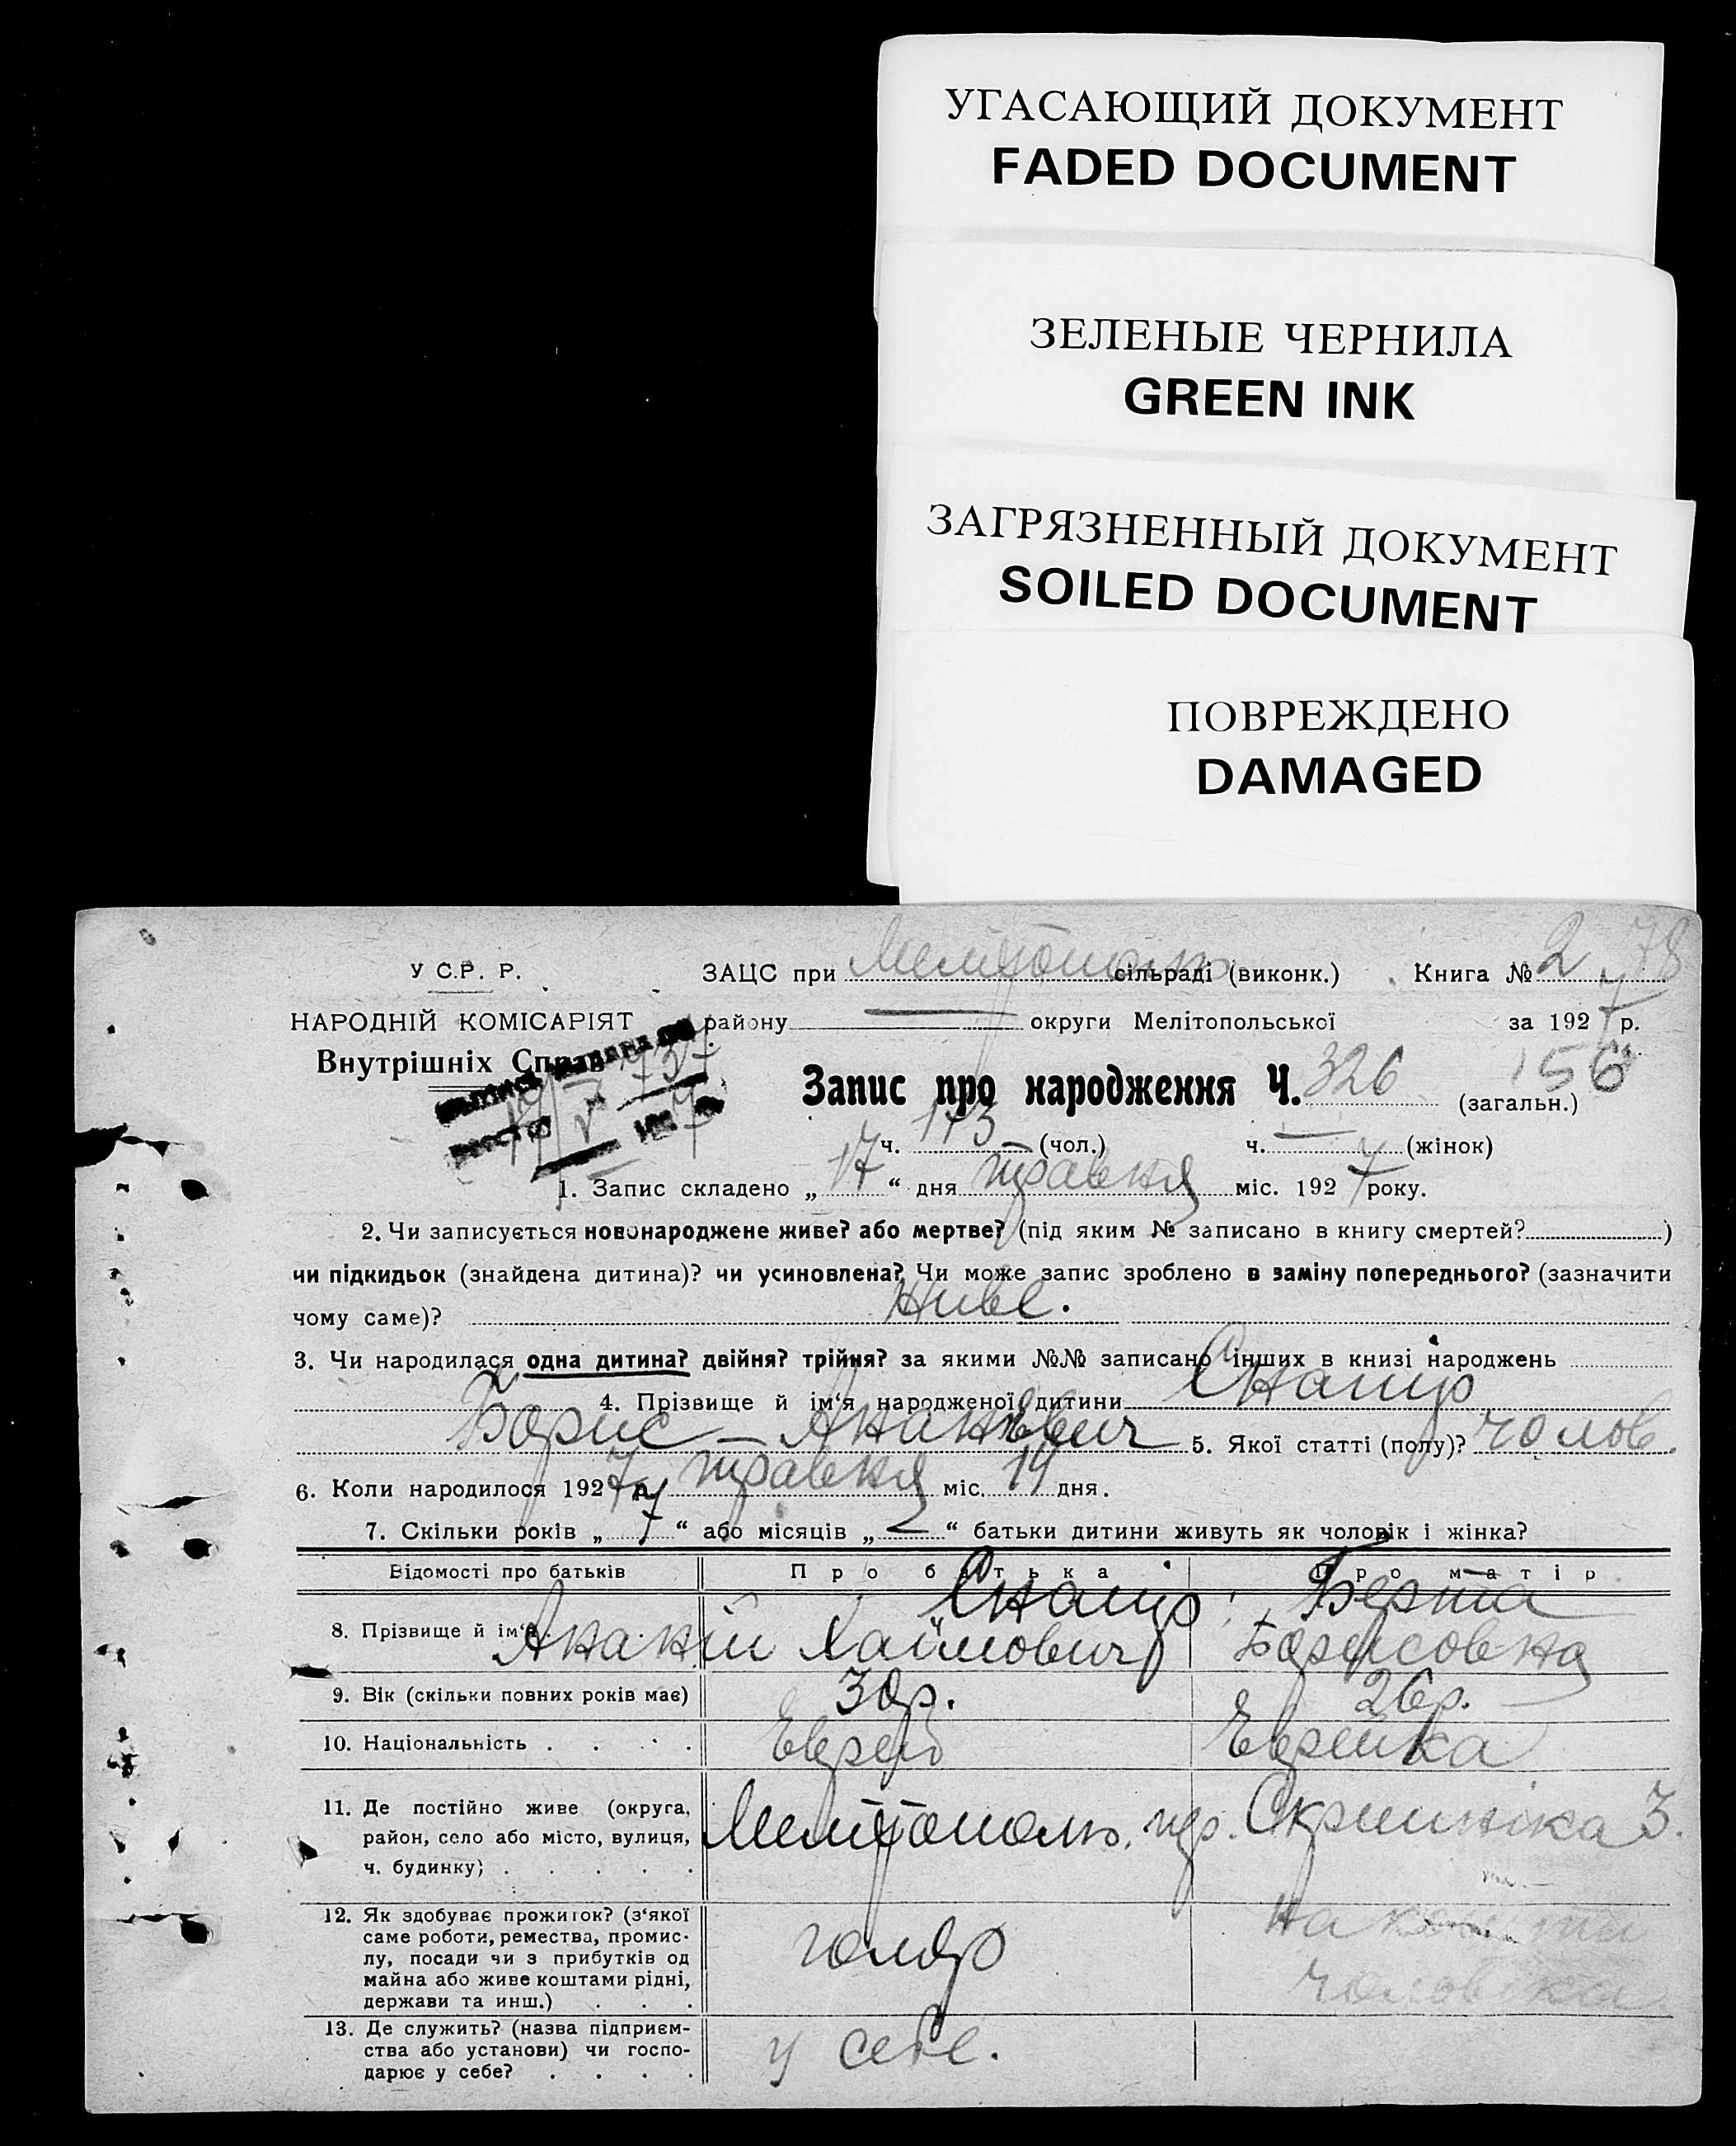 УГАСАЮЩИЙ ДОКУМЕНТ
FADED DOCUMENT
ЗЕЛЕНЫЕ ЧЕРНИЛА
GREEN INK
ЗАГРЯЗНЕННЫЙ ДОКУМЕНТ
SOILED DOCUMENT
ПОВРЕЖДЕНО
DAMAGED
У С.Р. Р. ЗАЦС при сільраді (виконк.) Книга № 2 78
НАРОДНІЙ КОМІСАРІЯТ району — округи Мелітопольської за 1927 р.
Внутрішніх Справ
Запис про народження Ч. 326 (загальн.) 156
ч. 173 (чол.) ч. — (жінок)
1. Запис складено „17“ дня травня міс. 1927 року.
2. Чи записується новонароджене живе? або мертве? (під яким № записано в книгу смертей? )
чи підкидьок (знайдена дитина)? чи усиновлена? Чи може запис зроблено в заміну попереднього? (зазначити
чому саме)? живе.
3. Чи народилася одна дитина? двійня? трійня? за якими №№ записано інших в книзі народжень
4. Прізвище й ім'я народженої дитини
Борис 5. Якої статті (полу)? чолов.
6. Коли народилося 1927 р. травня міс. 14 дня.
7. Скільки років „7“ або місяців „—“ батьки дитини живуть як чоловік і жінка?
Відомості про батьків Про батька Про матір
8. Прізвище й ім'я Хаїмович Берта
Борисовна
9. Вік (скільки повних років має) 30р. 26р.
10. Національність . . . . Еврей Еврейка
11. Де постійно живе (округа,
район, село або місто, вулиця,
ч. будинку) . . . . . 3.
12. Як здобуває прожиток? (з'якої
саме роботи, ремества, промис-
лу, посади чи з прибутків од
майна або живе коштами рідні,
держави та инш.) . . . голяр на кошти
чоловіка
13. Де служить? (назва підприєм-
ства або установи) чи госпо-
дарює у себе? . . . . у себе.